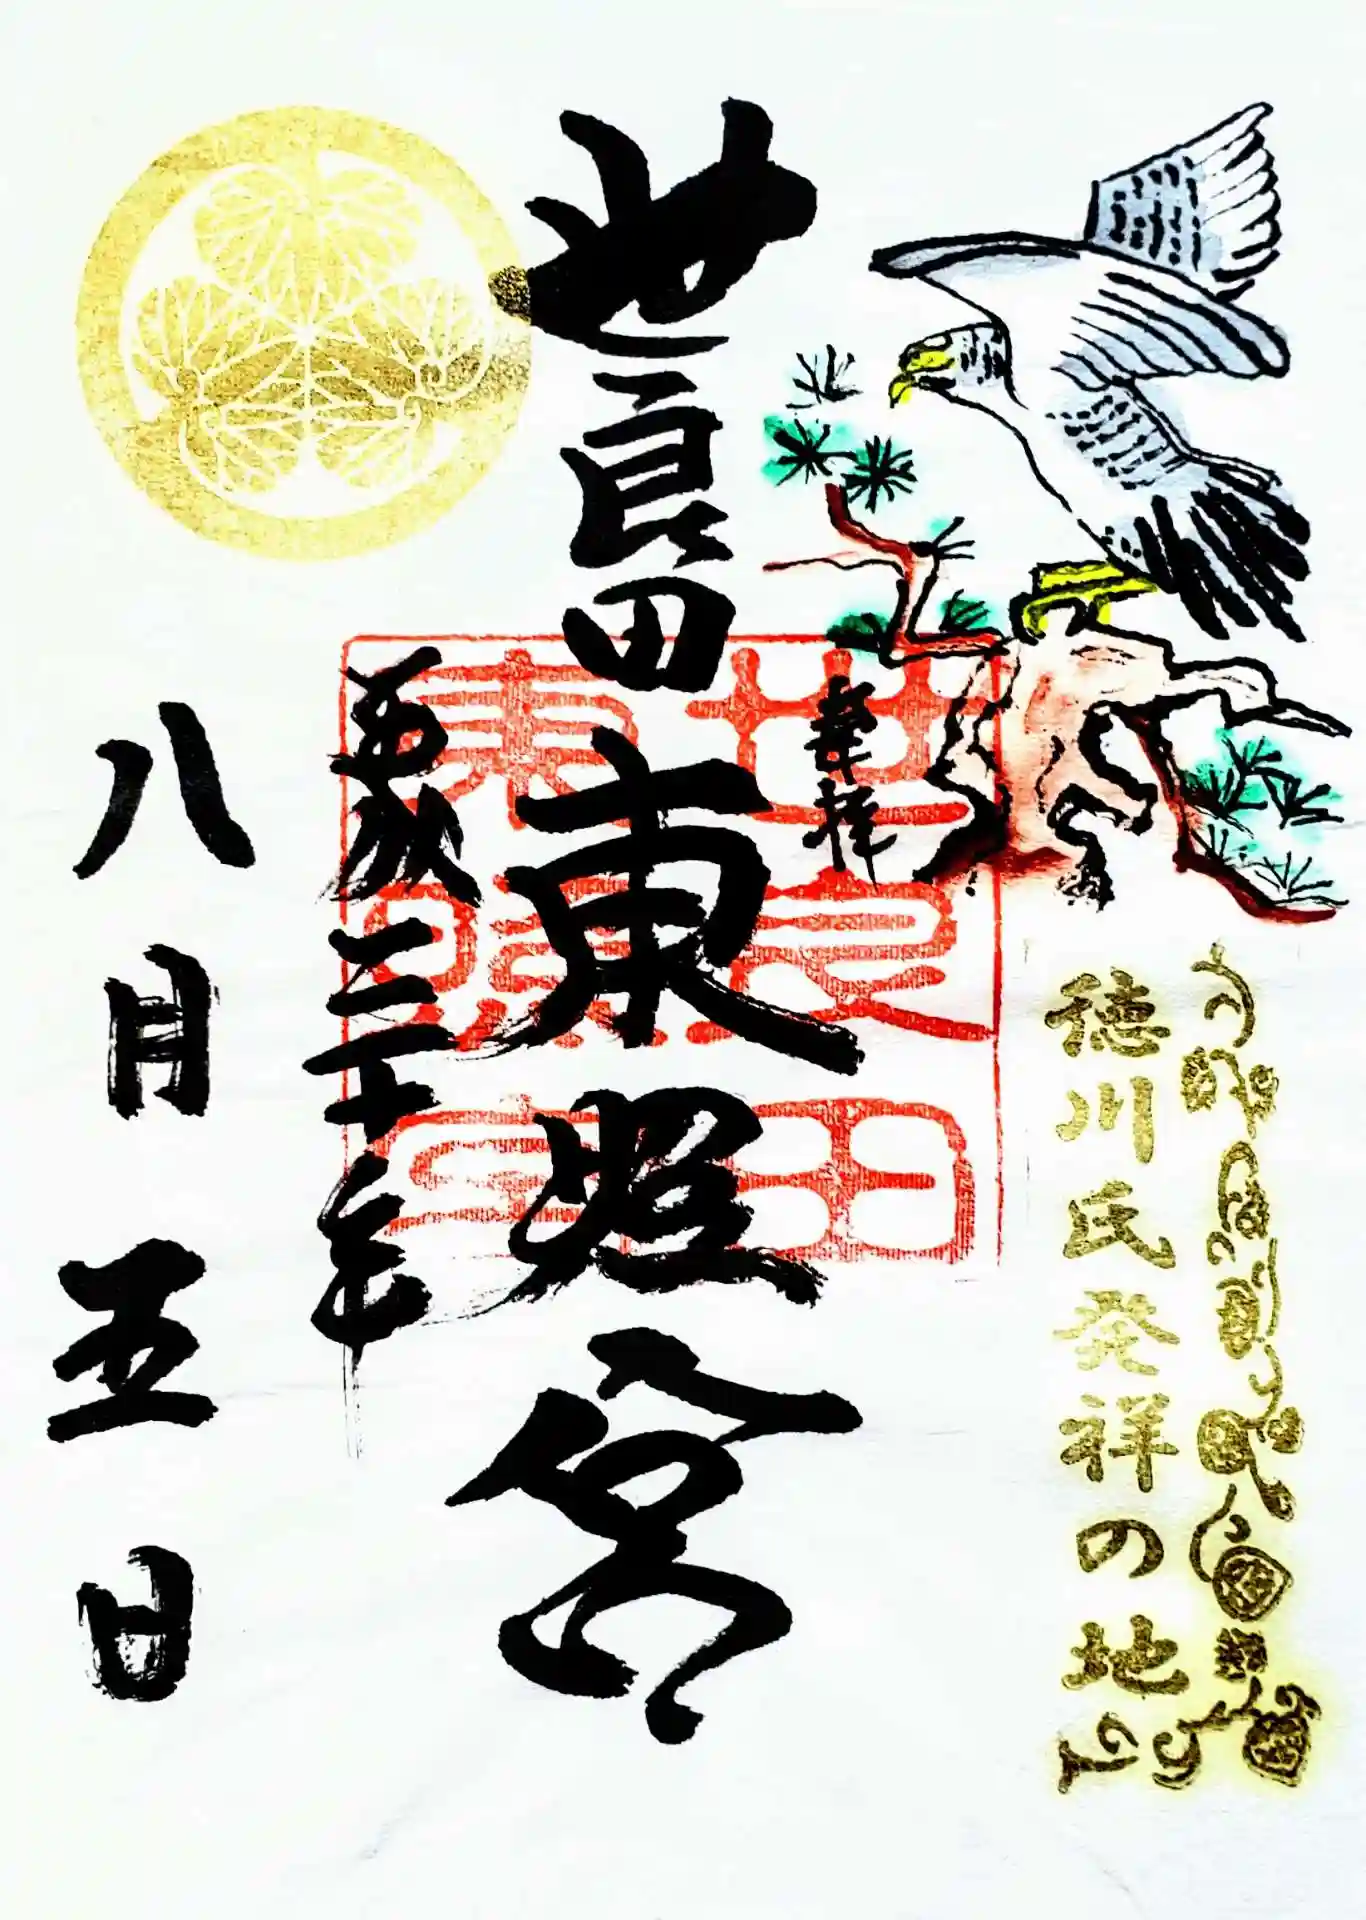 徳川氏発祥の地
奉拝
世良田東照宮
平成三十年
八月五日
世良田
東照宮